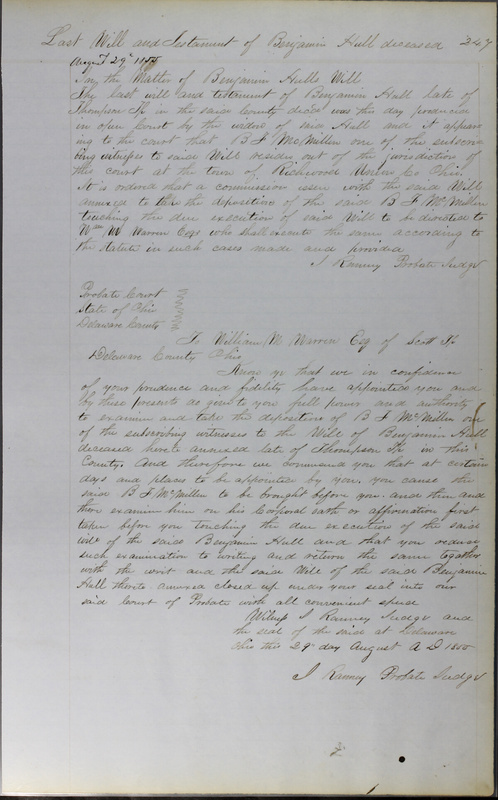 Last Will and Testament of Benjamin Hull deceased 247
August 29th 1855
In the Matter of Benjamin Hulls Will
The last will and testament of Benjamin Hull late of
Thompson Tp in the said County decd was this day produced
in open Court by the widow of said Hull and it appear
ing to the court that B F McMillen one of the subscri
bing witnesses to said Will resides out of the jurisdiction of
this court at the town of Richwood Union Co Ohio
It is ordered that a commission issue with the said Will
annexed to take the deposition of the said B F McMillen
touching the due execution of said Will to be directed to
Wm M Warren Esqr who shall execute the same according to
the statute in such cases made and provided
I Ranney Probate Judge
Probate Court
State of Ohio
Delaware County
To William M Warren Esq of Scott Tp
Delaware County Ohio
Know ye that we in confidence
of your prudence and fidelity have appointed you and
by these presents do give to you full power and authority
to examine and take the deposition of B F McMillen one
of the subscribing witnesses to the Will of Benjamin Hull
deceased hereto annexed late of Thompson Tp in this
County. And therefore we command you that at certain
days and places to be appointed by you, you cause the
said B F McMillen to be brought before you. and then and
there examine him on his Corporal oath or affirmation first
taken before you touching the due execution of the said
will of the said Benjamin Hull and that you reduce
such examination to writing and return the same together
with the writ and the said Will of the said Benjamin
Hull thereto annexed closed up under your seal into our
said Court of Probate with all convenient speed
Witness I Ranney Judge and
the seal of the said at Delaware
Ohio this 29th day August A D 1855
I Ranney Probate Judge